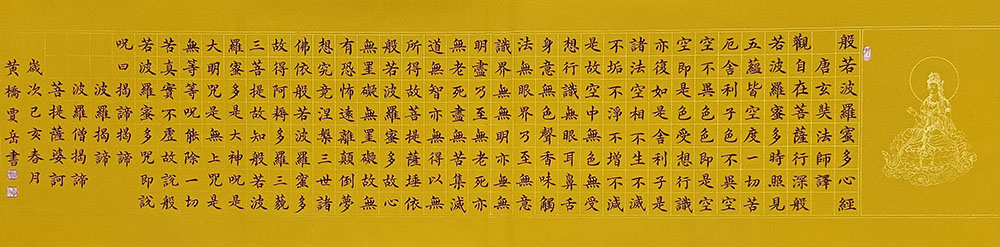 般若波羅蜜多心經
唐玄奘法師譯
觀自在菩薩行深般
若波羅蜜多時照見
五蘊皆空度一切苦
厄舍利子色不異空
空不異色色即是空
空即是色受想行識
亦復如是舍利子是
諸法空相不生不滅
不垢不淨不增不減
是故空中無色無受
想行識無眼耳鼻舌
身意無色聲香味觸
法無眼界乃至無意
識界無無明亦無無
明盡乃至無老死亦
無老死盡無苦集滅
道無智亦無得以無
所得故菩提薩埵依
般若波羅蜜多故心
無罣礙無罣礙故無
有恐怖遠離顛倒夢
想究竟涅槃三世諸
佛依般若波羅蜜多
故得阿耨多羅三藐
三菩提故知般若波
羅蜜多是大神呪是
大明呪是無上呪是
無等等呪能除一切
苦真實不虛故說般
若波羅蜜多呪即說
呪曰 揭諦揭諦
波羅揭諦
波羅僧揭諦
菩提薩婆訶
歲次己亥春月
黃橋賈岳書